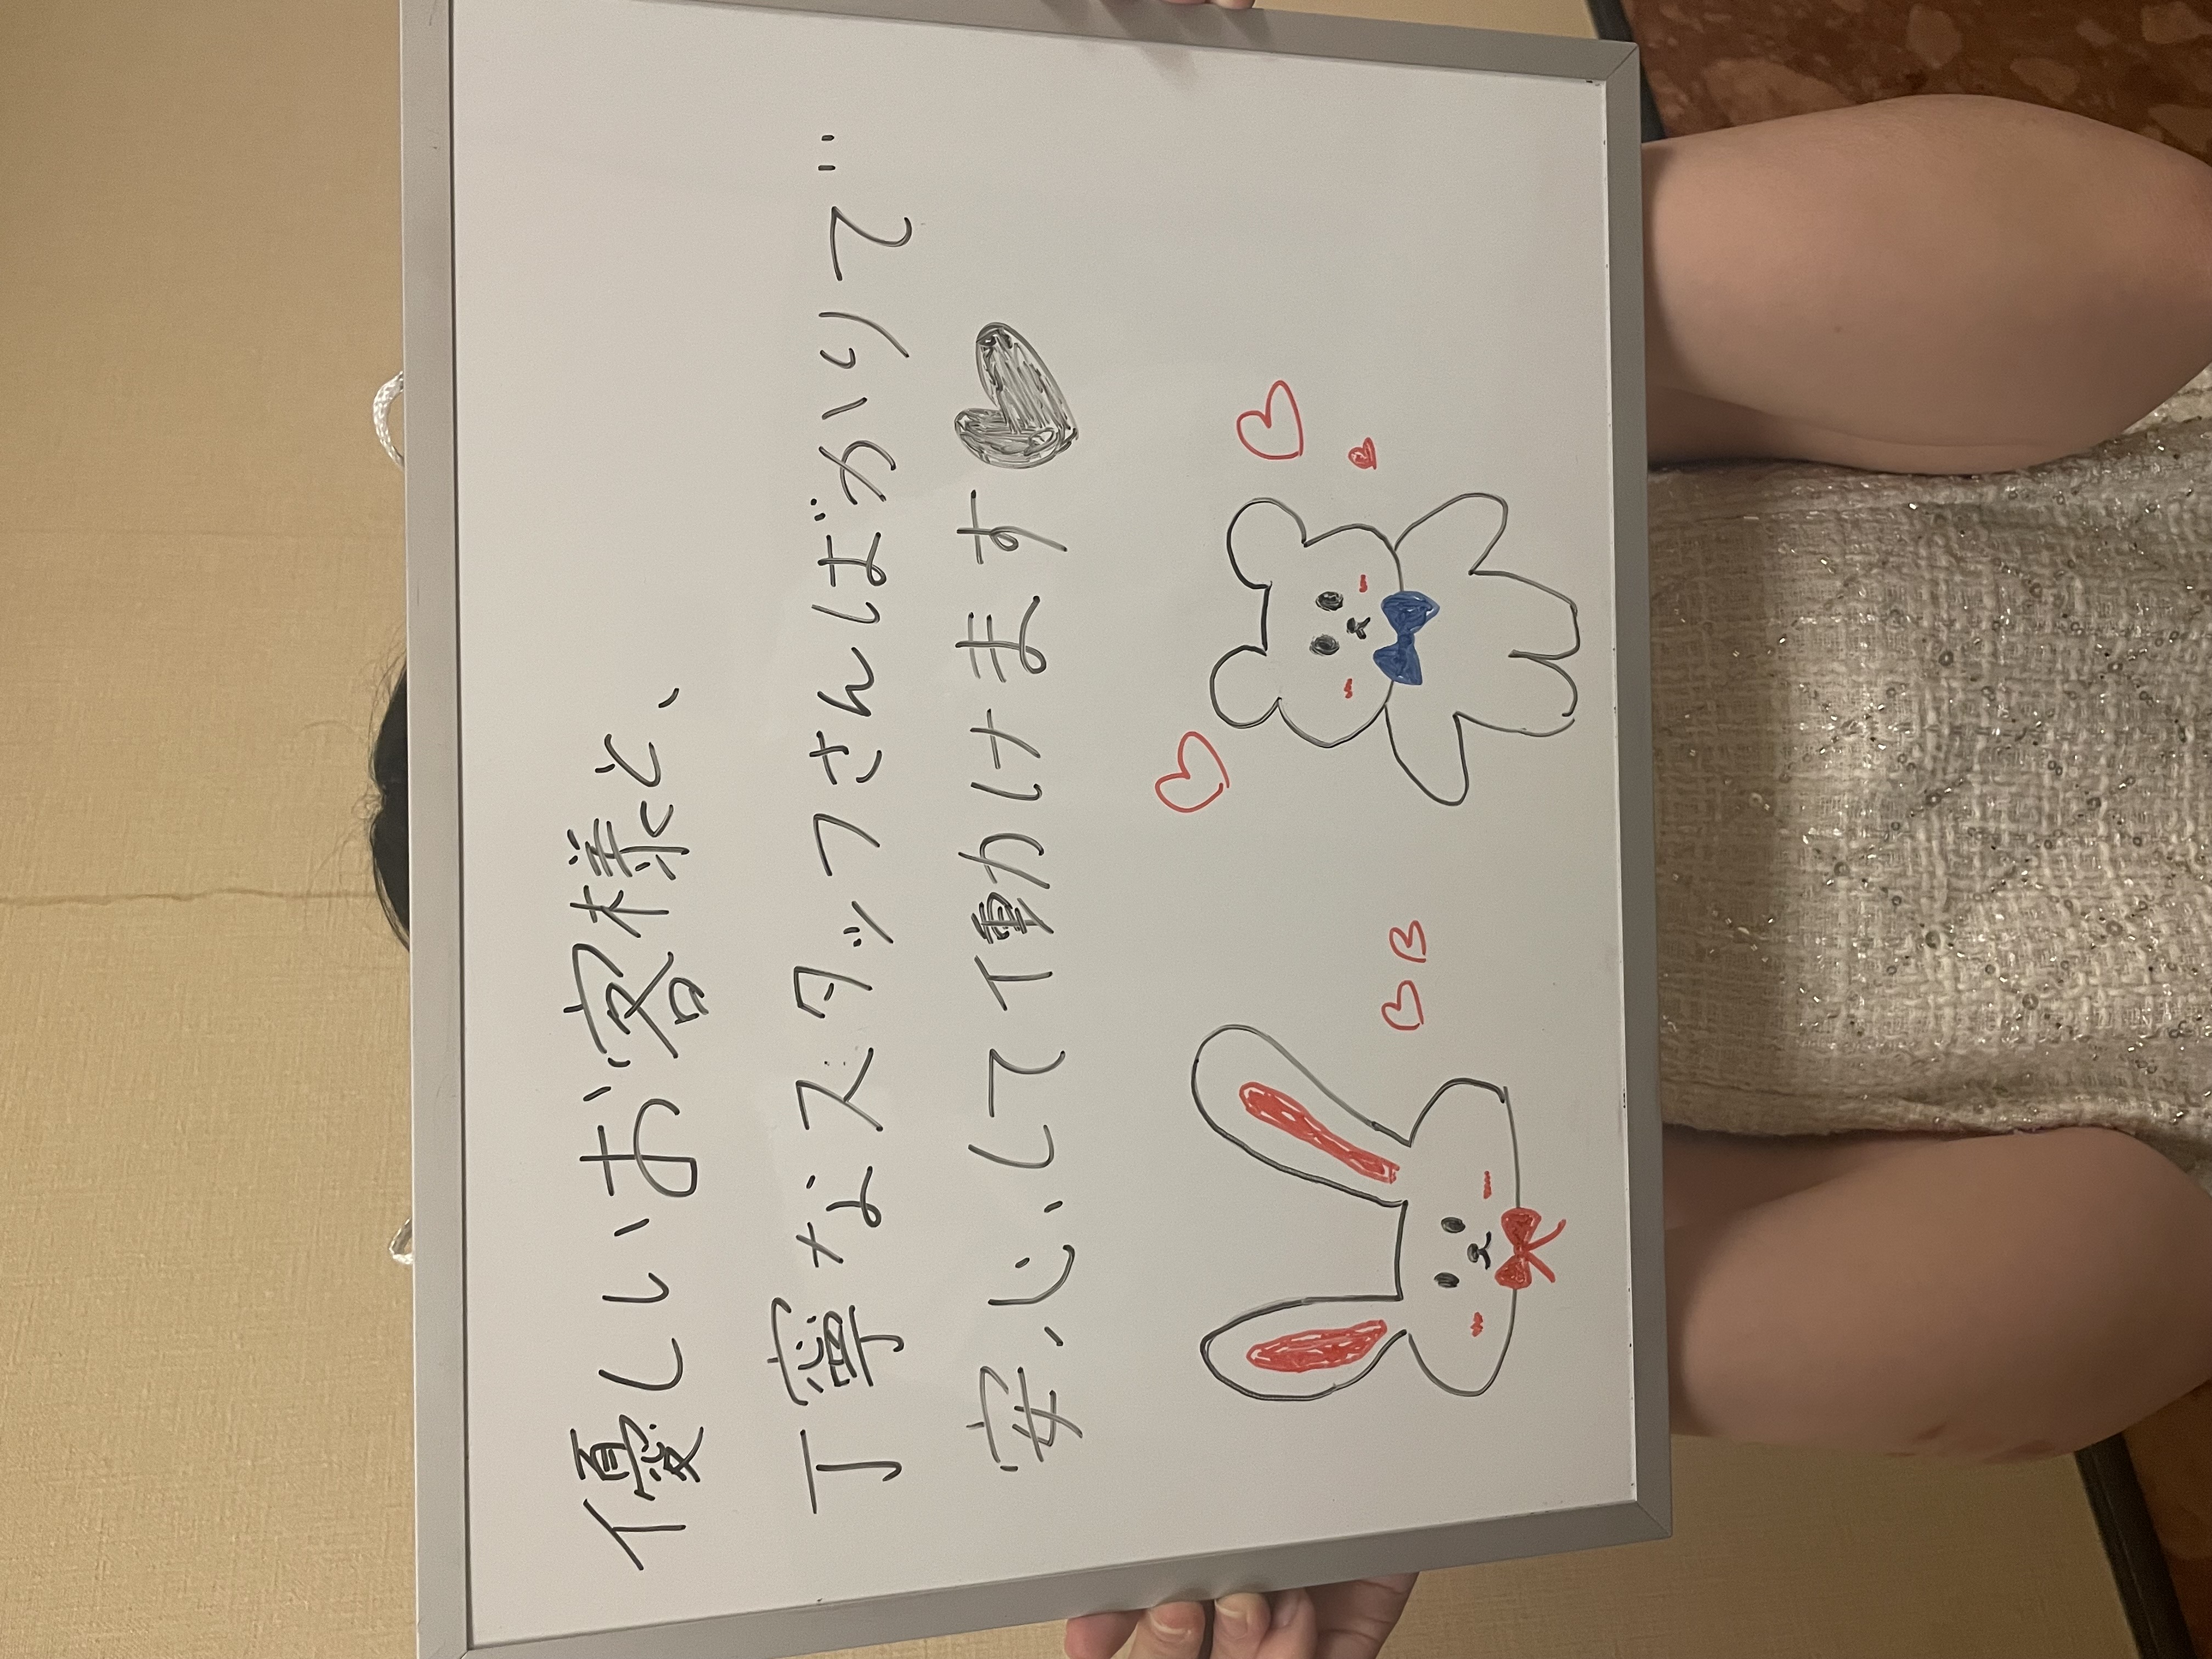 優しいお客様と、
丁寧なスタッフさんばかりで…
安心して働けます♥